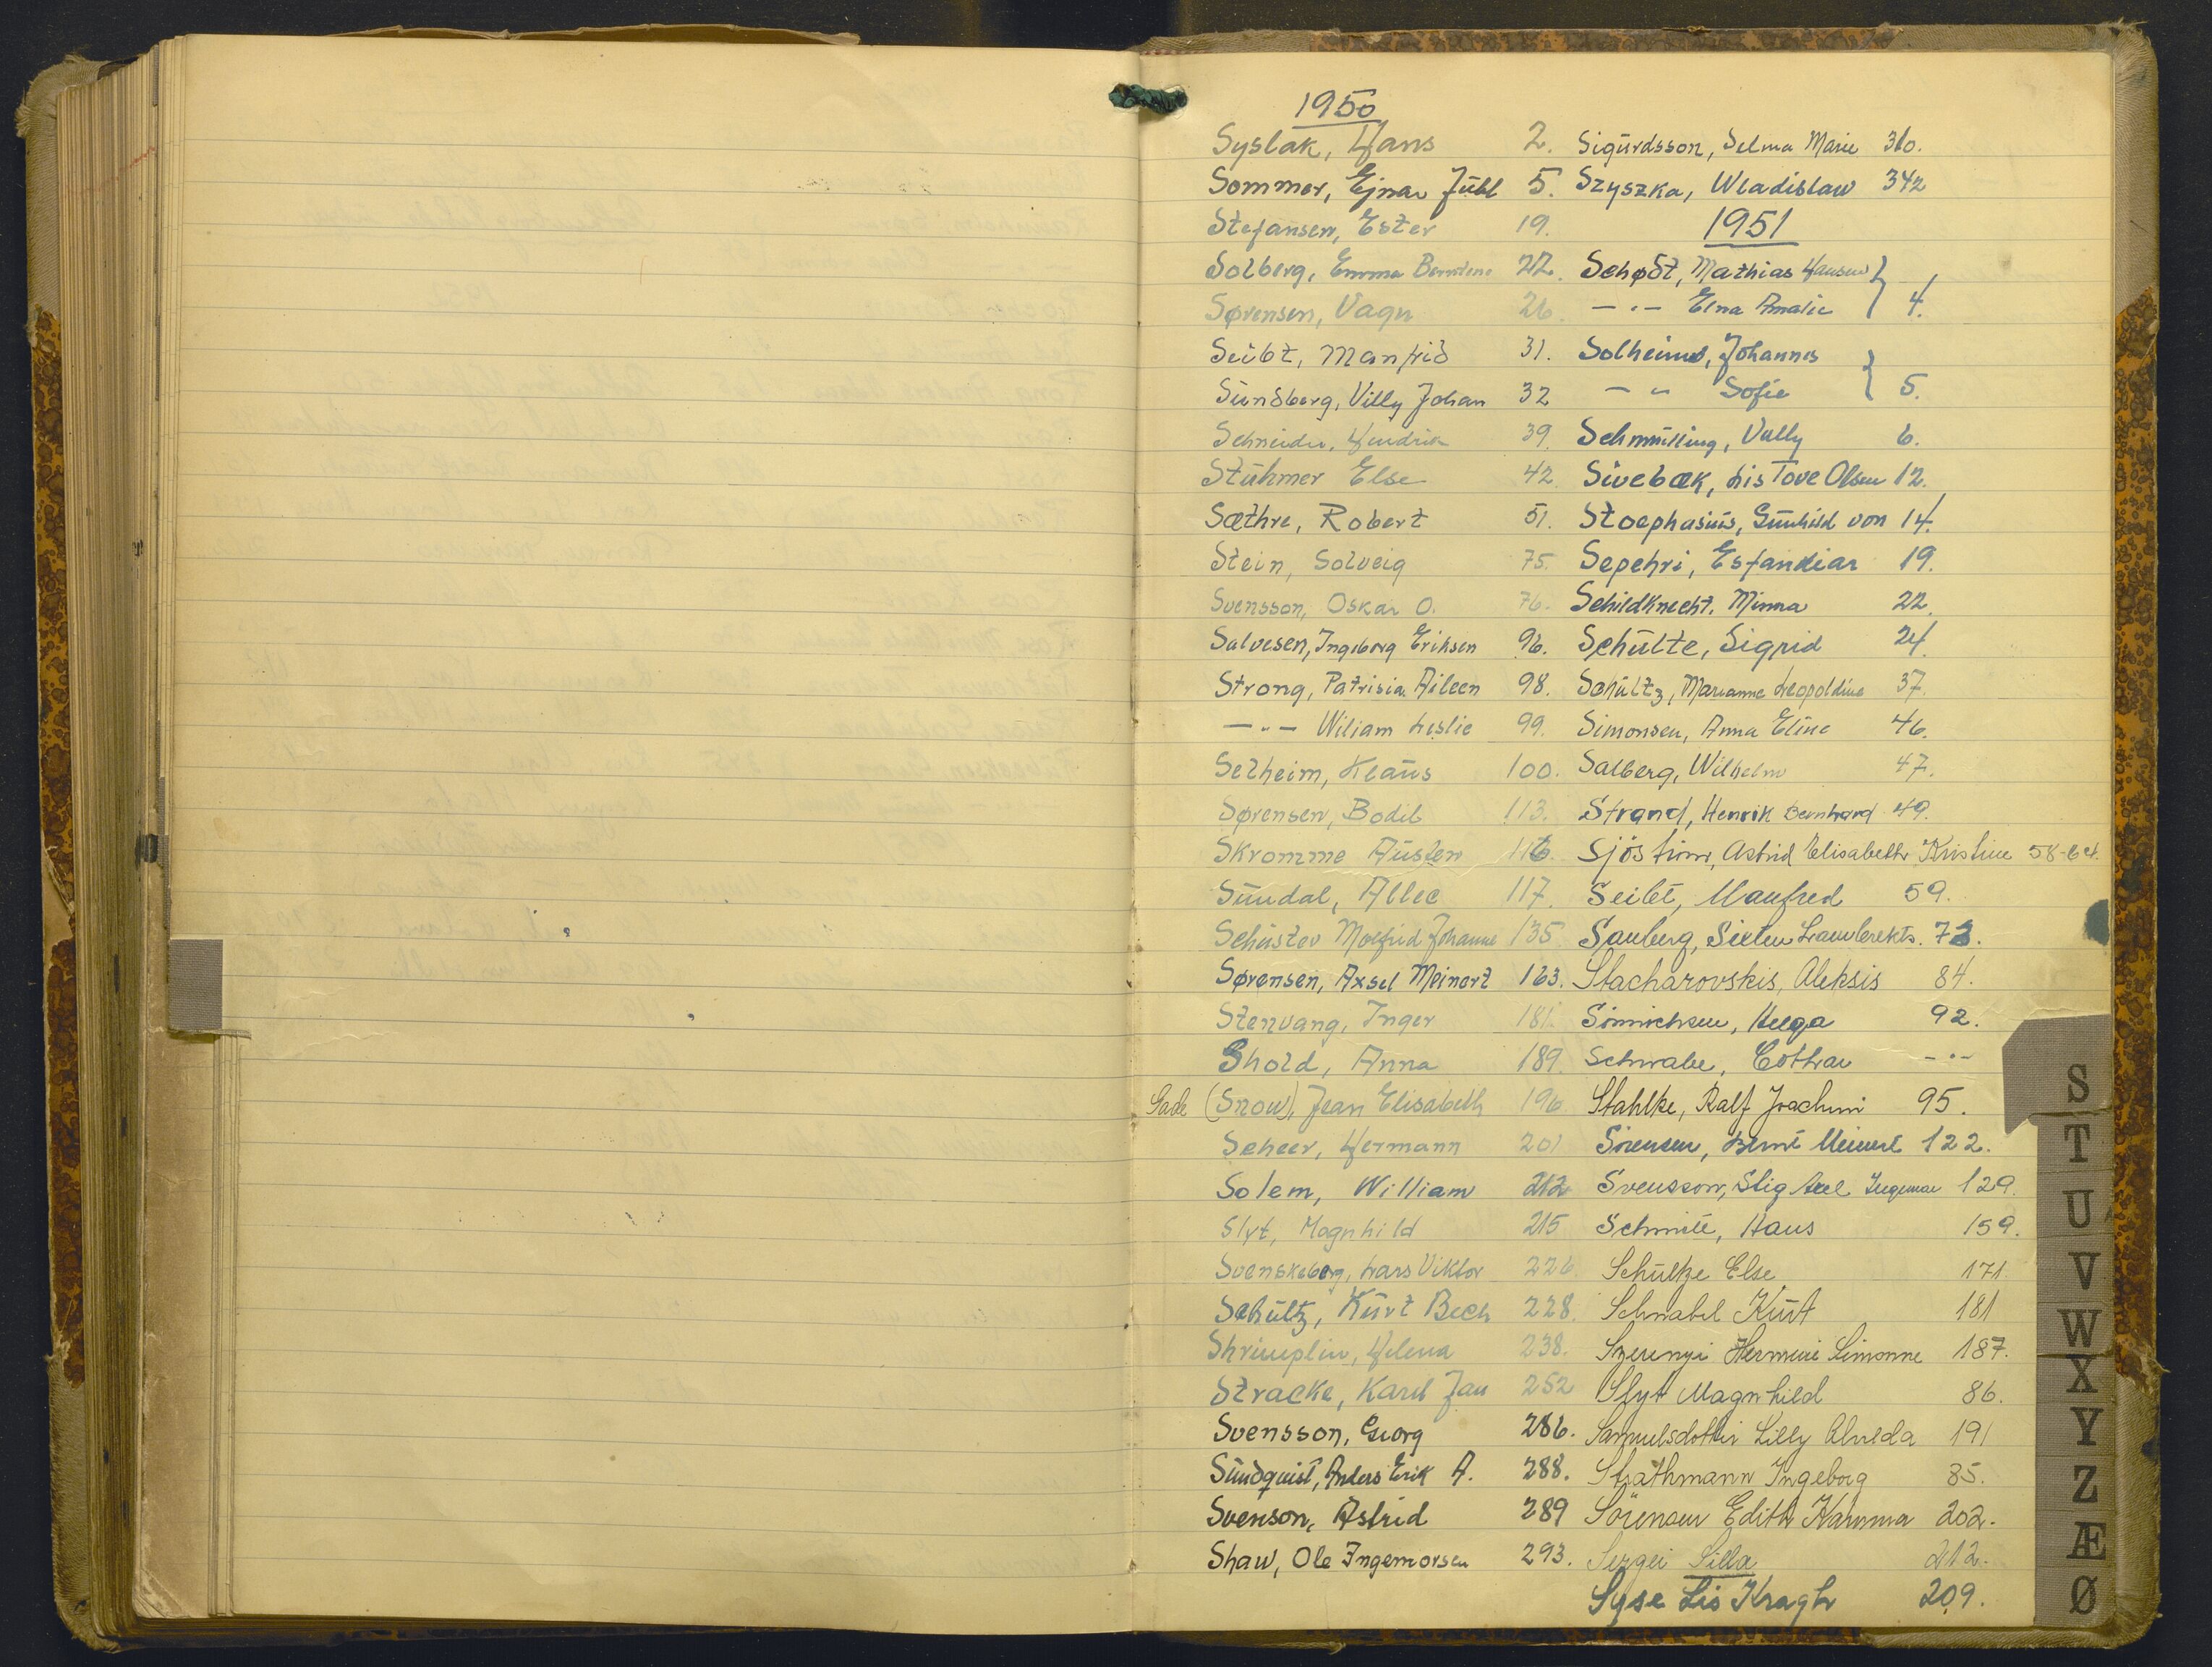 1950
Syslak, Hans 2.
Sommer, Ejnar Juhl 5.
Stefansen, Ester 19.
Solberg, Emma 22.
Sørensen, Vagn 26.
Seibt, Manfrid 31.
Sündberg, Villy Johan 32
Schneider, Hendrik 39.
Stühmer Else 42.
Sæthre, Robert 51.
Stein, Solveig 75.
Svensson, Oskar O. 76.
Salvesen, Ingeborg Eriksen 96.
Strong, Patrisia Aileen 98.
— " — Wiliam Leslie 99.
Selheim, Klaüs 100.
Sørensen, Bodil 113.
Skromme Aüsten 116.
Sündal, Allec 117.
Schüster Molfrid Johanne 135.
Sørensen, Axsel Meinert 163.
Stenvang, Inger 181.
Shold, Anna 189.
Gade (Snow), Jean Elisabeth 196
Scheer, Hermann 201
Solem, William 212
Slyt, Magnhild 215
Svenskeberg, Lars Viktor 226.
Schültz, Kürt Bech 228.
Shrimplin, Helena 238.
Stracke, Karl Jan 252
Svensson, Georg 286.
Sündquist, Anders Erik A. 288.
Svenson, Astrid 289
Shaw, Ole Ingemorsen 293.
Sigürdsson, Selma Marie 310.
Szyszka, Wladislaw 342
1951
Schødt, Mathias Hansen
— " — Elna Amalie } 4.
Solheim, Johannes
— " Sofie } 5.
Schmülling, Vally 6.
Sivebæk, Lis Tove Olsen 12.
Stoephasiüs, Günhild von 14.
Sepehri, Esfandiar 19.
Schildknecht, Minna 22.
Schülte, Sigrid 24.
Schültz, Marianne Leopoldine 37.
Simonsen, Anna Eline 46.
Salberg, Wilhelm 47.
Strand, Henrik Bernhard 49.
Astrid Elisabeth Kristine 58-64.
Seibt, Manfred 59.
Sanberg, 73.
Stacharovskis, Aleksis 84.
Sinnichsen, Helga 92.
Schwabe, Lothar — " —
Stahlke, Ralf Joachim 95.
Sörensen, Bernt Meinert 122.
Svensson, Stig Axel Ingemar 129.
Schmitt, Hans 159.
Schultze Else 171.
Schnabel Kürt 181
Szerenyi Hermine Simonne 187.
Slyt Magnhild 86.
Samuelsdottir Lilly Alvilda 191
Strathmann Ingeborg 85.
Sörensen Edith Kamma 202.
Sergei Silla 212.
Syse Lis Kragh 209.
S
T
U
V
W
X
Y
Z
Æ
Ø